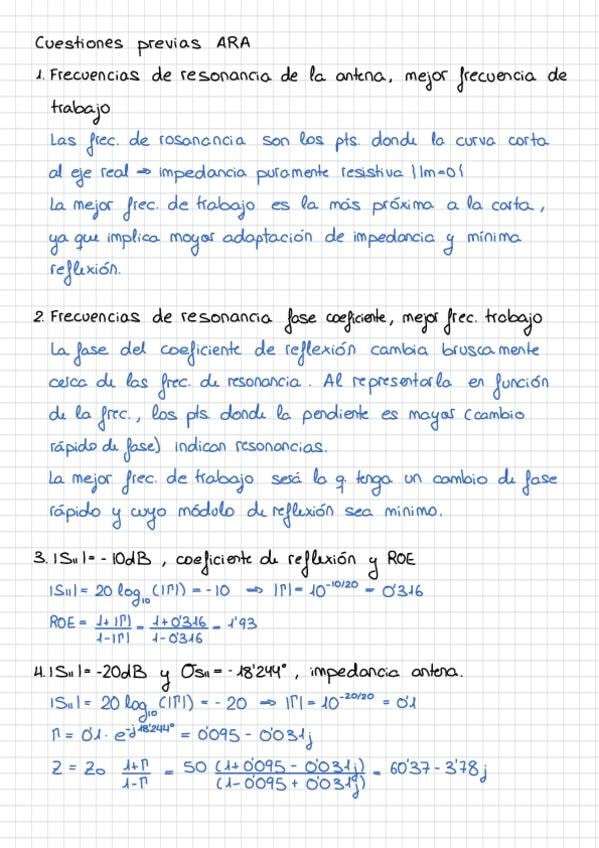 Cuestiones previas ARA
1. Frecuencias de resonancia de la antena, mejor frecuencia de
trabajo
Las frec. de rosonancia son los pts. donde la curva corta
al eje real → impedancia puramente resistiva |Im=0|
La mejor frec. de trabajo es la más próxima a la carta,
ya que implica mayor adaptación de impedancia y mínima
reflexión.
2. Frecuencias de resonancia fase coeficiente, mejor frec. trabajo
La fase del coeficiente de reflexión cambia bruscamente
cerca de las frec. de resonancia. Al representarla en función
de la frec., los pts donde la pendiente es mayor (cambio
rápido de fase) indican resonancias.
La mejor frec. de trabajo será la q. tenga un cambio de fase
rápido y cuyo módulo de reflexión sea mínimo.
3. |S₁₁| = -10dB, coeficiente de reflexión y ROE
|S₁₁| = 20 log₁₀ (|Γ|) = -10 → |Γ| = 10^(-10/20) = 0'316
ROE = (1+|Γ|)/(1-|Γ|) = (1+0'316)/(1-0'316) = 1'93
4. |S₁₁| = -20dB y ∅s₁₁ = -18'244°, impedancia antena.
|S₁₁| = 20 log₁₀ (|Γ|) = -20 → |Γ| = 10^(-20/20) = 0'1
Γ = 0'1 · e^(-j18'244°) = 0'095 - 0'031j
Z = Z₀ (1+Γ)/(1-Γ) = 50 (1+0'095 - 0'031j)/(1-0'095 + 0'031j) = 60'37 - 3'78j